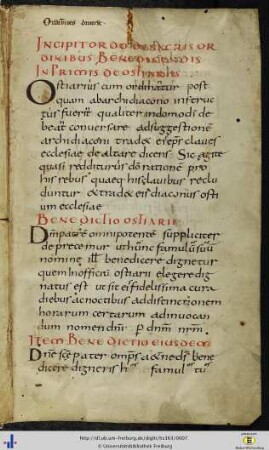 Ordines diverse
INCIPIT ORDO DE SACRIS OR
DINIBUS BENEDICENDIS
IN PRIMIS DE OSTIARIIS
Ostiarius cum ordinatur post
quam ab archidiacono instruc
tus fuerit qualiter in domo dī de
beat conversare ad suggestionē
archidiaconi tradat ei eps claves
ecclesiae de altare dicens Sic agite
quasi reddituri dō rationē pro
his rebus quae his clavibus reclu
duntur & tradat ei diaconus osti
um ecclesiae
BENEDICTIO OSTIARII
Dm patrē omnipotentē suppliciter
deprecemur ut hunc famulū suū
nomine ill benedicere dignetur
quem in officiū ostiarii elegere dig
natus est ut sit ei fidelissima cura
diebus ac noctibus ad distinctionem
horarum certarum ad invocan
dum nomen dnī p dnm nrm
ITEM BENEDICTIO EIUSDEM
Dne scē pater omps aeterne ds bene
dicere digneris famulū tuū
http://dl.ub.uni-freiburg.de/diglit/hs363/0007
© Universitätsbibliothek Freiburg